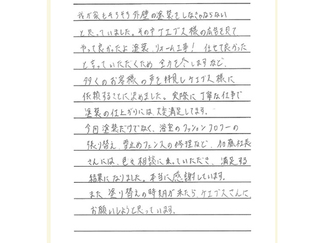 我が家もそろそろ外壁の塗装をしなきゃならない
と思っていました。その時ケエプス様の広告を見て
やって良かったよ塗装 リフォーム工事！ 任せて良かった
と言っていただくため 全力を介しますなど、
多くのお客様の声を拝見しケエプス様に
依頼することに決めました。実際に丁寧な仕事で
塗装の仕上がりには大変満足してます。
今回塗装だけでなく、浴室のクッションフロアーの
張り替え 壁止めフェンスの修理など、加藤社長
さんには、色々相談に乗っていただき、満足する
結果になりました。本当に感謝しています。
また塗り替えの時期が来たら、ケエプスさんに
お願いしようと思っています。